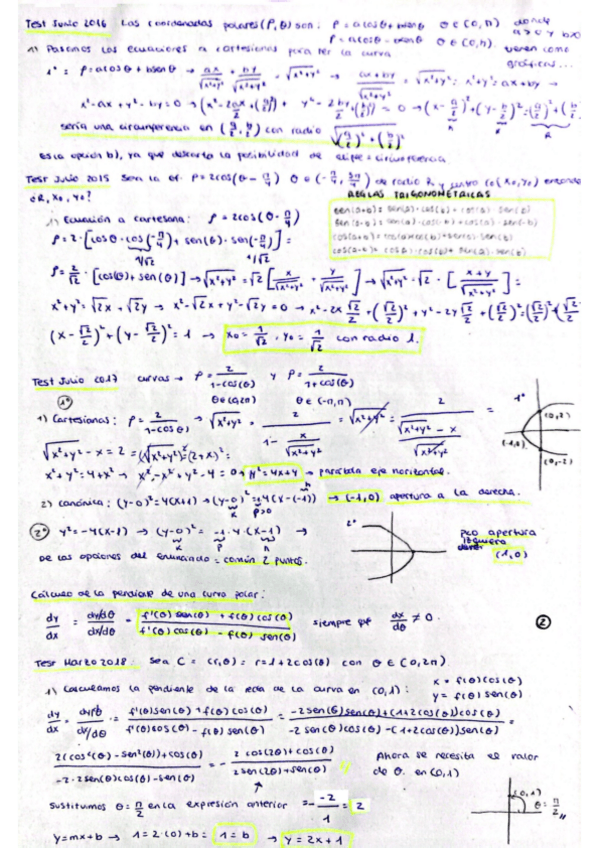 Test Junio 2016 Las coordenadas polares (ρ, θ) son: ρ = a cosθ + b senθ θ ∈ (0, π) donde
ρ = a cosθ - b senθ θ ∈ (0, π). a > 0 y b > 0
1) Pasamos las ecuaciones a cartesianas para ver la curva vienen como
gráficos...
1º: ρ = a cosθ + b senθ → ax/√(x²+y²) + by/√(x²+y²) = √(x²+y²) → (ax + by)/√(x²+y²) = √(x²+y²) = x²+y² = ax + by →
x² - ax + y² - by = 0 → (x² - 2ax/2 + (a/2)²) + y² - 2by/2 + (b/2)² = 0 → (x - a/2)² + (y - b/2)² = (a/2)² + (b/2)²
sería una circunferencia en (a/2, b/2) con radio √((a/2)² + (b/2)²)
Es la opción b), ya que descarto la posibilidad de elipse = circunferencia.
Test Julio 2015 Sea la ef. ρ = 2cos(θ - π/4) θ ∈ (-π/4, 3π/4) de radio R, y centro C0(x0, y0) entonces
¿R, x0, y0?
REGLAS TRIGONOMÉTRICAS
1) Ecuación a cartesiana: ρ = 2cos(θ - π/4)
sen(a+b) = sen(a)·cos(b) + cos(a)·sen(b)
ρ = 2·[cosθ·cos(-π/4) + sen(θ)·sen(-π/4)] =
1/√2 1/√2
ρ = 2/√2 · [cos(θ) + sen(θ)] → √(x²+y²) = √2 [x/√(x²+y²) + y/√(x²+y²)] → √(x²+y²) = √2 · [(x+y)/√(x²+y²)] =
x² + y² = √2x + √2y → x² - √2x + y² - √2y = 0 → x² - 2x√2/2 + (√2/2)² + y² - 2y√2/2 + (√2/2)² = (√2/2)² + (√2/2)²
(x - √2/2)² + (y - √2/2)² = 1 → x0 = 1/√2, y0 = 1/√2 con radio 1.
Test Julio 2017 curvas → ρ = 2/(1-cos(θ)) y ρ = 2/(1+cos(θ))
1º θ ∈ (0, 2π) θ ∈ (-π, π)
1) Cartesianas: ρ = 2/(1-cosθ) → √(x²+y²) = 2/(1 - x/√(x²+y²)) = √(x²+y²) = 2/((√(x²+y²) - x)/√(x²+y²)) =
1º
(0, 2)
(-1, 0)
(0, -2)
√(x²+y²) - x = 2 = (√(x²+y²))² = (2+x)² =
x² + y² = 4 + x² → x² - x² + y² - 4 = 0 → y² = 4x + 4 → parábola eje horizontal.
2) canónica: (y-0)² = 4(x+1) → (y-0)² = 4(x-(-1)) → (-1, 0) apertura a la derecha.
p>0
2º y² = -4(x-1) → (y-0)² = -1·4·(x-1) →
2º
pco apertura
izquierda
(1, 0)
De las opciones del enunciado = común 2 puntos.
Cálculo de la pendiente de una curva polar:
dy/dx = (dy/dθ)/(dx/dθ) = (f'(θ) sen(θ) + f(θ) cos(θ))/(f'(θ) cos(θ) - f(θ) sen(θ)) siempre que dx/dθ ≠ 0.
2
Test Marzo 2018: Sea C = (r, θ) = r = 1 + 2cos(θ) con θ ∈ (0, 2π).
1) Calculamos la pendiente de la recta de la curva en (0, 1): x = f(θ) cos(θ)
y = f(θ) sen(θ)
dy/dx = (dy/dθ)/(dx/dθ) = (f'(θ) sen(θ) + f(θ) cos(θ))/(f'(θ) cos(θ) - f(θ) sen(θ)) = (-2sen(θ) sen(θ) + (1+2cos(θ)) cos(θ))/(-2 sen(θ) cos(θ) - (1+2cos(θ)) sen(θ)) =
(2(cos²(θ) - sen²(θ)) + cos(θ))/(-2·2sen(θ) cos(θ) - sen(θ)) = - (2 cos(2θ) + cos(θ))/(2 sen(2θ) + sen(θ)) Ahora se necesita el valor
de θ en (0, 1)
Sustituimos θ = π/2 en la expresión anterior = - -2/1 = 2
(0, 1)
θ = π/2
y = mx + b → 1 = 2·(0) + b = 1 = b → y = 2x + 1